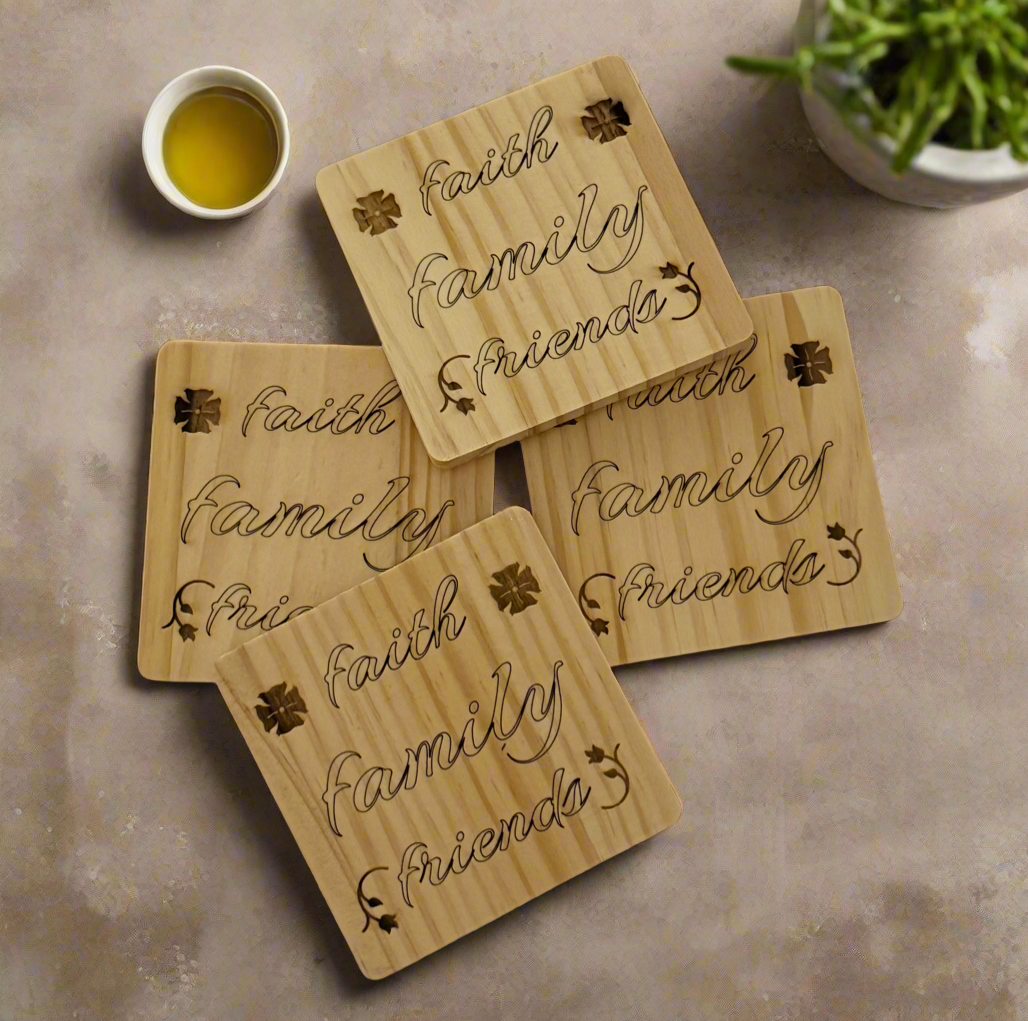 faith
family
friends
faith
family
frie
faith
family
friends
faith
family
friends